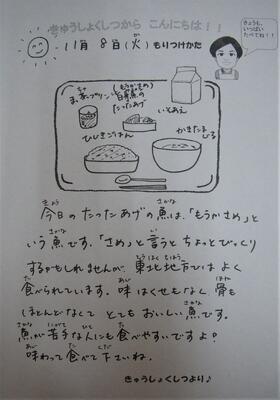 きゅうしょくしつから こんにちは！！
きょうも、
いっぱい
たべてね！！
11月 8日(火) もりつけかた
まっ茶プリン
(もうかさめ)
白身魚の
たったあげ
いとあえ
ひじきごはん
かきたまじる
今日のたったあげの魚は、「もうかさめ」と
いう魚です。「さめ」と言うとちょっとびっくり
するかもしれませんが、東北地方ではよく
食べられています。味はくせもなく骨も
ほとんどなくて とても おいしい魚です。
魚が苦手な人にも食べやすいですよ？
味わって食べて下さいね。
きゅうしょくしつより♪